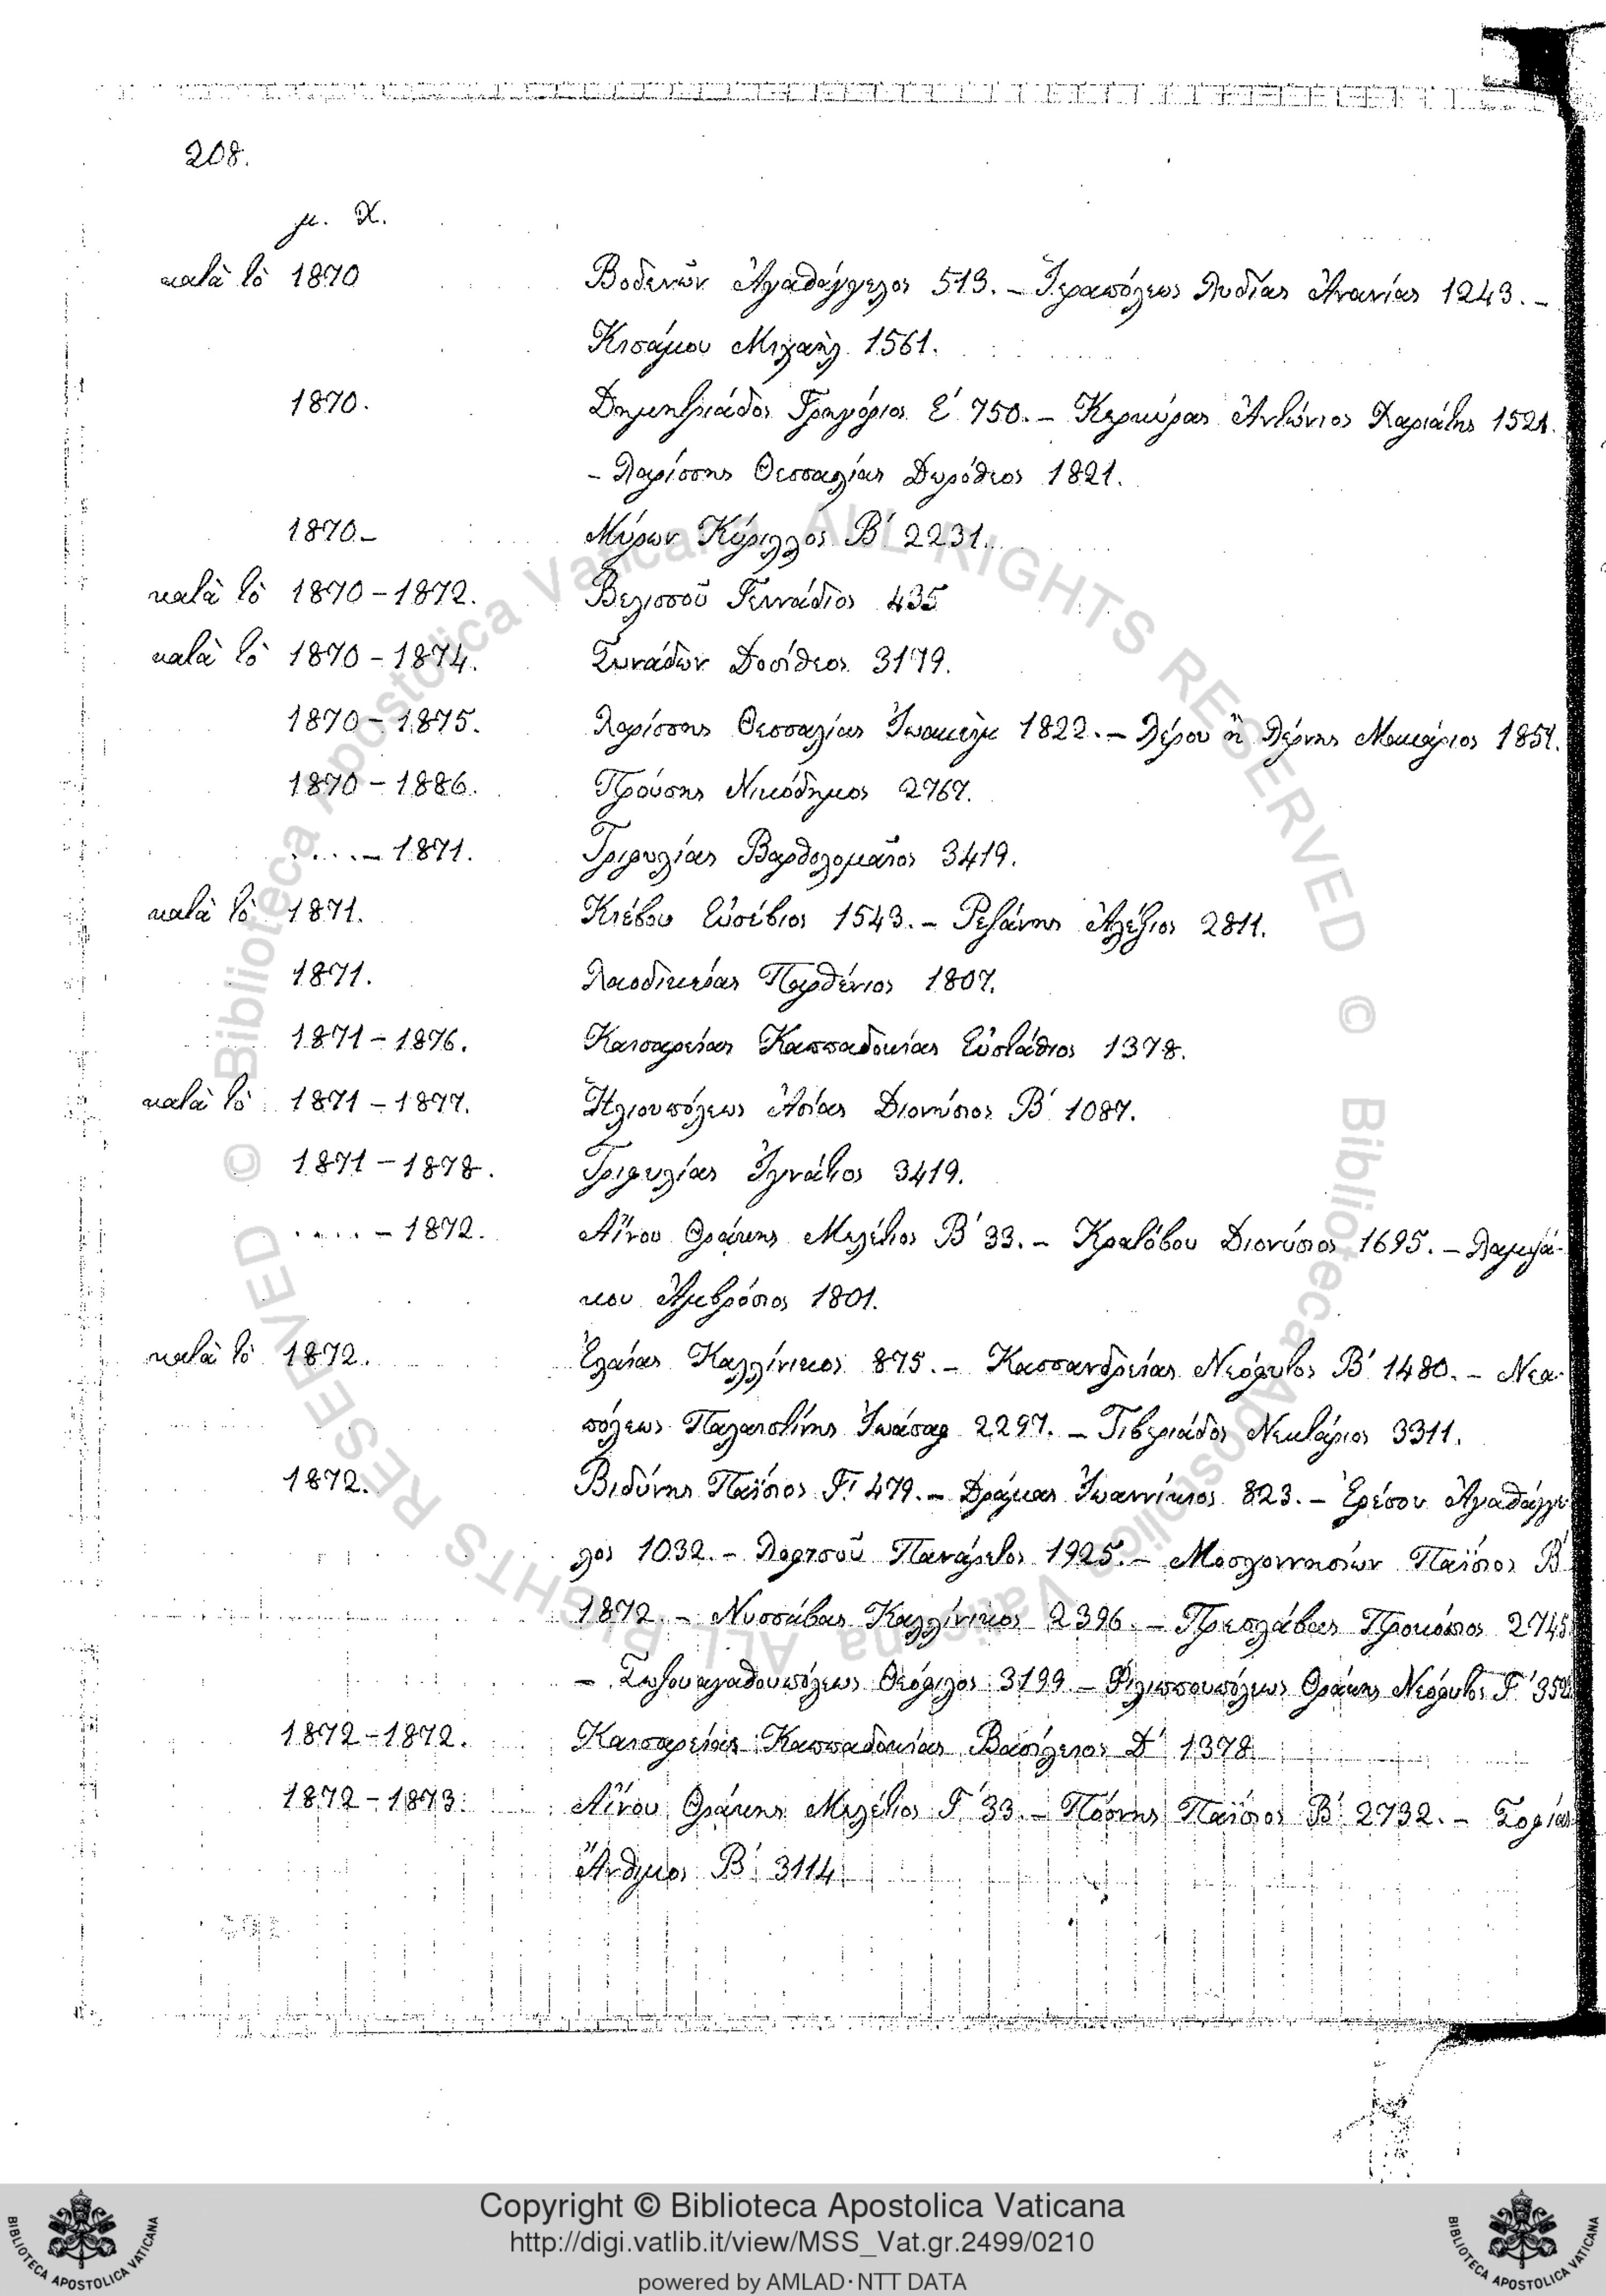 208.
μ. Χ.
κατὰ τὸ 1870 Βοδενῶν Ἀγαθάγγελος 513. – Ἱεραπόλεως Λυδίας Ἀνανίας 1243. –
Κισάμου Μιχαὴλ 1561.
1870. Δημητριάδος Γρηγόριος Ε΄ 750. – Κερκύρας Ἀντώνιος Χαριάτης 1521.
– Λαρίσσης Θεσσαλίας Δωρόθεος 1821.
1870 – Μύρων Κύριλλος Β΄ 2231.
κατὰ τὸ 1870 – 1872. Βελισσοῦ Γεννάδιος 435
κατὰ τὸ 1870 – 1874. Συνάδων Δοσίθεος 3179.
1870 – 1875. Λαρίσσης Θεσσαλίας Ἰωακεὶμ 1822. – Λέρου ἢ Λέρνης Μακάριος 1851.
1870 – 1886. Προύσης Νικόδημος 2767.
..... – 1871. Τριφυλίας Βαρθολομαῖος 3419.
κατὰ τὸ 1871. Κιέβου Εὐσέβιος 1543. – Ρεζάνης Ἀλέξιος 2811.
1871. Λαοδικείας Παρθένιος 1807.
1871 – 1876. Καισαρείας Καππαδοκίας Εὐστάθιος 1378.
κατὰ τὸ 1871 – 1877. Ἡλιουπόλεως Ἀσίας Διονύσιος Β΄ 1087.
1871 – 1878. Τριφυλίας Ἰγνάτιος 3419.
..... – 1872. Αἴνου Θράκης Μελέτιος Β΄ 33. – Κρατόβου Διονύσιος 1695. – Λαμψά-
κου Ἀμβρόσιος 1801.
κατὰ τὸ 1872. Ἐλαίας Καλλίνικος 875. – Κασσανδρείας Νεόφυτος Β΄ 1480. – Νεα-
πόλεως Παλαιστίνης Ἰωάσαφ 2297. – Τιβεριάδος Νεκτάριος 3311.
1872. Βιδύνης Παΐσιος Γ΄ 479. – Δράμας Ἰωαννίκιος 823. – Ἐρέσου Ἀγαθάγγε-
λος 1032. – Λοφτσοῦ Πανάρετος 1925. – Μοσχοννησίων Παΐσιος Β΄
1872. – Νυσσάβας Καλλίνικος 2396. – Πρεσλάβας Προκόπιος 2745
– Σωζουαγαθουπόλεως Θεόφιλος 3199 – Φιλιππουπόλεως Θράκης Νεόφυτος Γ΄
1872 – 1872. Καισαρείας Καππαδοκίας Βασίλειος Δ΄ 1378
1872 – 1873. Αἴνου Θράκης Μελέτιος Γ΄ 33 – Πόσνης Παΐσιος Β΄ 2732. – Σοφίας
Ἄνθιμος Β΄ 3114
© Biblioteca Apostolica Vaticana ALL RIGHTS RESERVED © Biblioteca Apostolica Vaticana ALL RIGHTS RESERVED
Copyright © Biblioteca Apostolica Vaticana
http://digi.vatlib.it/view/MSS_Vat.gr.2499/0210
powered by AMLAD·NTT DATA
BIBLIOTECA APOSTOLICA VATICANA
BIBLIOTECA APOSTOLICA VATICANA